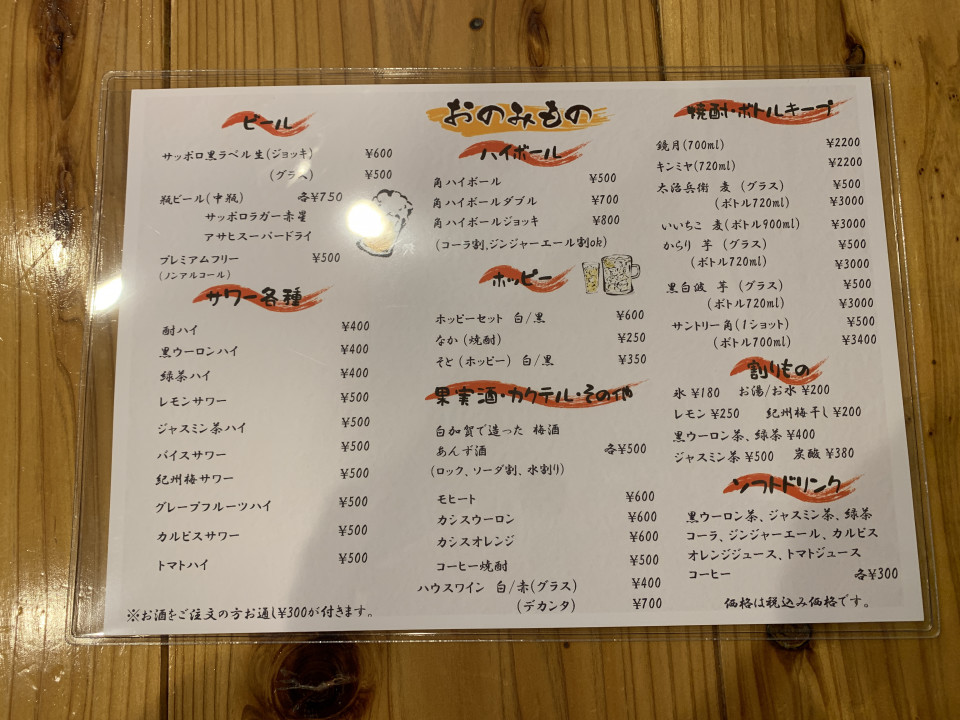 おのみもの
ビール
サッポロ黒ラベル生(ジョッキ) ¥600
(グラス) ¥500
瓶ビール(中瓶) 各¥750
サッポロラガー赤星
アサヒスーパードライ
プレミアムフリー ¥500
(ノンアルコール)
サワー各種
酎ハイ ¥400
黒ウーロンハイ ¥400
緑茶ハイ ¥400
レモンサワー ¥500
ジャスミン茶ハイ ¥500
バイスサワー ¥500
紀州梅サワー ¥500
グレープフルーツハイ ¥500
カルピスサワー ¥500
トマトハイ ¥500
※お酒をご注文の方お通し¥300が付きます。
ハイボール
角ハイボール ¥500
角ハイボールダブル ¥700
角ハイボールジョッキ ¥800
(コーラ割、ジンジャーエール割ok)
ホッピー
ホッピーセット 白/黒 ¥600
なか(焼酎) ¥250
そと(ホッピー) 白/黒 ¥350
果実酒・カクテル・その他
白加賀で造った 梅酒
あんず酒 各¥500
(ロック、ソーダ割、水割り)
モヒート ¥600
カシスウーロン ¥600
カシスオレンジ ¥600
コーヒー焼酎 ¥500
ハウスワイン 白/赤(グラス) ¥400
(デカンタ) ¥700
焼酎・ボトルキープ
鏡月(700ml) ¥2200
キンミヤ(720ml) ¥2200
杢治兵衛 麦 (グラス) ¥500
(ボトル720ml) ¥3000
いいちこ 麦(ボトル900ml) ¥3000
からり 芋 (グラス) ¥500
(ボトル720ml) ¥3000
黒白波 芋 (グラス) ¥500
(ボトル720ml) ¥3000
サントリー角(1ショット) ¥500
(ボトル700ml) ¥3400
割りもの
氷 ¥180 お湯/お水 ¥200
レモン ¥250 紀州梅干し ¥200
黒ウーロン茶、緑茶 ¥400
ジャスミン茶 ¥500 炭酸 ¥380
ソフトドリンク
黒ウーロン茶、ジャスミン茶、緑茶
コーラ、ジンジャーエール、カルピス
オレンジジュース、トマトジュース
コーヒー 各¥300
価格は税込み価格です。